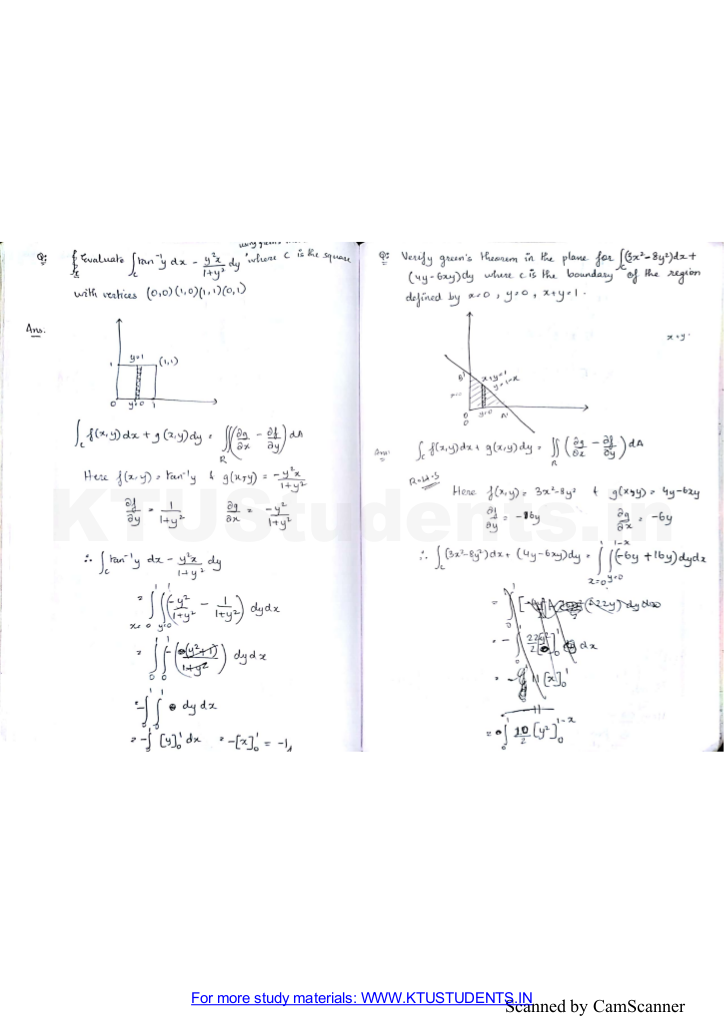 using green's
Q: Evaluate ∫_C tan⁻¹y dx − y²x/(1+y²) dy, where C is the square
with vertices (0,0) (1,0) (1,1) (0,1)
Ans:
1 y=1 (1,1)
0 y=0 1
∫_C f(x,y)dx + g(x,y)dy = ∬_R (∂g/∂x − ∂f/∂y) dA
Here f(x,y) = tan⁻¹y & g(x,y) = −y²x/(1+y²)
∂f/∂y = 1/(1+y²) ∂g/∂x = −y²/(1+y²)
∴ ∫_C tan⁻¹y dx − y²x/(1+y²) dy
= ∫_{x=0}^1 ∫_{y=0}^1 (−y²/(1+y²) − 1/(1+y²)) dy dx
= ∫_0^1 ∫_0^1 −((y²+1)/(1+y²)) dy dx
= −∫_0^1 ∫_0^1 dy dx
= −∫_0^1 [y]_0^1 dx = −[x]_0^1 = −1
Q: Verify green's theorem in the plane for ∫_C (3x²−8y²)dx +
(4y−6xy)dy where C is the boundary of the region
defined by x=0, y=0, x+y=1.
x+y
B x+y=1
y=1−x
x=0
0 y=0 A
Ans: ∫_C f(x,y)dx + g(x,y)dy = ∬_R (∂g/∂x − ∂f/∂y) dA
R.H.S
Here f(x,y) = 3x²−8y² & g(x,y) = 4y−6xy
∂f/∂y = −16y ∂g/∂x = −6y
∴ ∫_C (3x²−8y²)dx + (4y−6xy)dy = ∫_{x=0}^1 ∫_{y=0}^{1−x} (−6y + 16y) dy dx
= ∫_0^1 10/2 [y²]_0^{1−x}
KTUStudents.in
For more study materials: WWW.KTUSTUDENTS.IN
Scanned by CamScanner